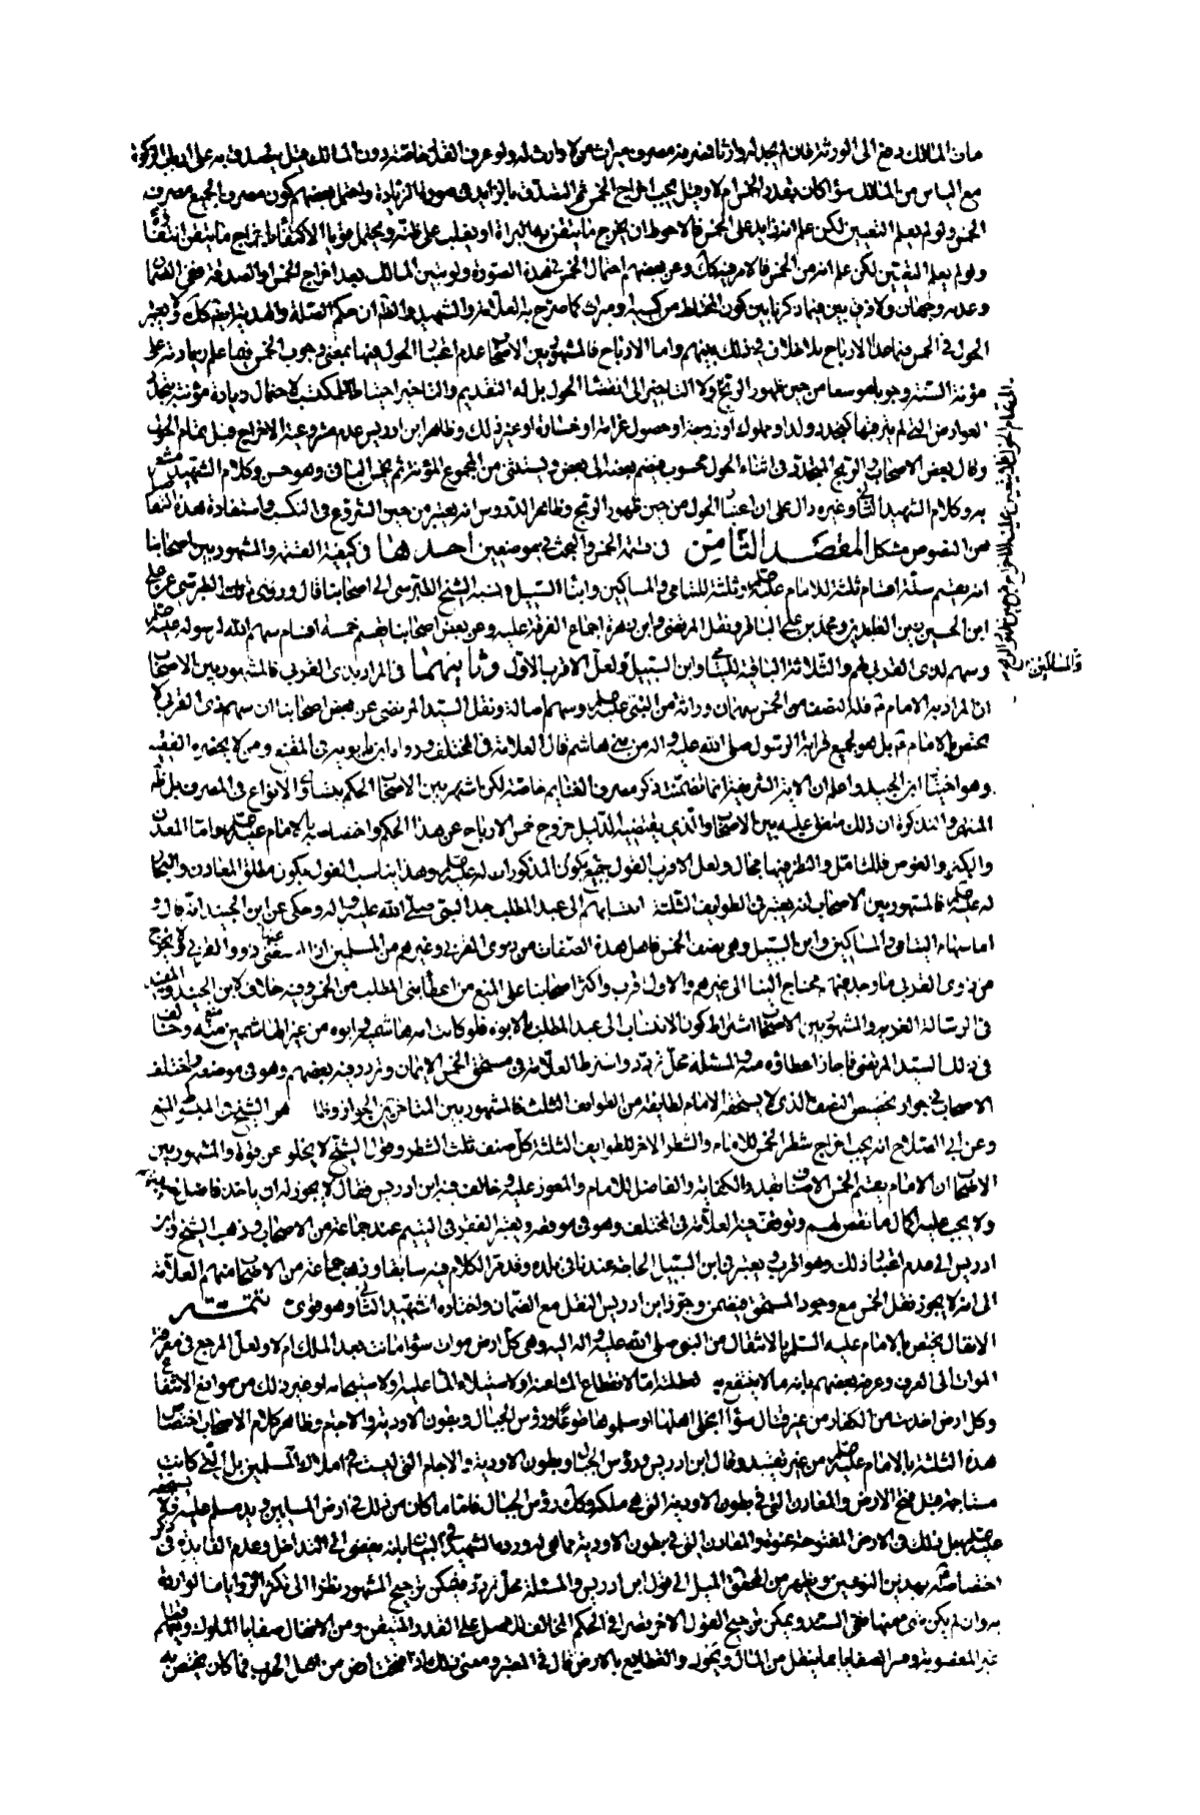 مات المالك دفع الى الورثة فان لم يجد له وارثا فمصرفه مصرف ميراث من لا وارث له ولو عرف القدر خاصة دون المالك قيل يتصدق به على
مع الياس من المالك سواء كان بقدر الخمس ام لا وقيل يجب اخراج الخمس ثم الصدقة بالزايد في صورة الزيادة واحتمل بعضهم كون مصرف الجميع مصرف
الخمس ولو لم يعلم التعيين لكن علم انه زايد على الخمس فالاحوط ان يخرج ما يتيقن به البراءة او يغلب على ظنه ويحتمل قويا الاكتفاء باخراج ما يتيقن انتفائه
ولو لم يعلم اليقين لكن علم انه من الخمس فالامر فيه كك وعن بعضهم احتمال الخمس في هذه الصورة ولو تبين المالك بعد اخراج الخمس او الصدقة ففي الضمان
وعدمه وجهان ولا فرق بين فيما ذكرنا بين كون المختلط من كسبه او ميراث كما صرح به العلامة والشهيد والظ ان حكم الصلة والهدية ايضا كك ولا يعتبر
الحول في الخمس فيما عدا الارباح بلا خلاف في ذلك بينهم واما الارباح فالمشهور بين الاصحاب عدم اعتبار الحول فيها بمعنى وجوب الخمس فيما علم زيادته على
مؤنة السنة وجوبا موسعا من حين ظهور الربح ولا التاخير الى انقضاء الحول بل له التقديم والتاخير احتياطا للمكتسب لاحتمال زيادة مؤنته بتجدد
العوارض التي لم يترقبها كتجدد ولد او مملوك او زوجة او حصول غرامة او خسارة او غير ذلك وظاهر ابن ادريس عدم مشروعية الاخراج قبل تمام الحول
وقال بعض الاصحاب والربح المتجدد في اثناء الحول محسوب فيضم بعضه الى بعض ويستثنى من المجموع المؤنة ثم يخمس الباقي وهو حسن وكلام الشهيد مشعر
به وكلام الشهيد الثاني وغيره دال على ان اعتبار الحول من حين ظهور الربح وظاهر الدروس انه يعتبر من حين الشروع في التكسب واستفادة هذه التفاصيل
من النصوص مشكل المقصد الثامن في قسمة الخمس والبحث في موضعين احدهما في كيفية القسمة والمشهور بين اصحابنا
انه يقسم ستة اقسام ثلثة للامام عليه السلم وثلثة لليتامى والمساكين وابناء السبيل ونسبة الشيخ الطبرسي الى اصحابنا قال وروى ذلك الطبري عن علي
ابن الحسين زين العابدين ومحمد بن علي الباقر ونقل المرتضى وابن زهرة اجماع الفرقة عليه وعن بعض اصحابنا يقسم خمسة اقسام سهم الله لرسوله عليه
وسهم لذي القربى لهم والثلاثة الباقية لليتامى وابن السبيل ولعل الاقرب الاول وثانيهما في المراد بذي القربى فالمشهور بين الاصحاب
ان المراد به الامام ع فله النصف من الخمس سهمان وراثة من النبي عليه السلم وسهم اصالة ونقل السيد المرتضى عن بعض اصحابنا ان سهم ذي القربى لا
يختص بالامام ع بل هو لجميع قرابة الرسول صلى الله عليه واله من بني هاشم قال العلامة في المختلف ورواه ابن بابويه في المقنع ومن لا يحضره الفقيه
وهو اختيار ابن الجنيد واعلم ان الاية الشريفة انما تضمنت ذكر مصرف الغنايم خاصة لكن اشتهر بين الاصحاب الحكم بتساوي الانواع في المصرف بل ظ
المنتهى والتذكرة ان ذلك متفق عليه بين الاصحاب والذي يقتضيه الدليل خروج خمس الارباح عن هذا الحكم واختصاصه بالامام عليه السلم واما المعدن
والكنز والغوص فللتامل والنظر فيها مجال ولعل الاقرب القول بجميع كون المذكورات له عليه السلم وهذا يناسب القول بكون مطلق المعادن والبحار
له عليه السلم فالمشهور بين الاصحاب انه يعتبر في الطوايف الثلثة انتسابهم الى عبد المطلب جد النبي صلى الله عليه واله وحكى عن ابن الجنيد انه قال و
اما سهام اليتامى والمساكين وابن السبيل وهي نصف الخمس فلاهل هذه الصفات من ذوي القربى وغيرهم من المسلمين اذا استغنى عنها ذوو القربى ولا يخرج
من ذوي القربى ما وجد فيهم محتاج اليها الى غيرهم والاول اقرب واكثر اصحابنا على المنع من اعطاء بني المطلب من الخمس وفيه خلاف لابن الجنيد والمفيد
في الرسالة الغرية والمشهور بين الاصحاب اشتراط كون الانتساب الى عبد المطلب بالابوة فلو كانت امه هاشمية وابوه من غير الهاشميين منع منه وخالف
في ذلك السيد المرتضى فاجاز اعطاؤه منه والمسئلة محل تردد واشترط العلامة في مستحق الخمس الايمان وتردد فيه بعضهم وهو في موضعه واختلف
الاصحاب في جواز تخصيص النصف الذي لا يستحقه الامام لطايفة من الطوايف الثلث فالمشهور بين المتاخرين الجواز وظاهر الشيخ في المبسوط المنع
وعن ابي الصلاح انه يجب اخراج شطر الخمس للامام والشطر الاخر للطوايف الثلثة كل صنف ثلث الشطر وقول الشيخ لا يخلو عن قوة والمشهور بين
الاصحاب ان الامام يقسم الخمس الاصناف بقدر الكفاية والفاضل للامام والمعوز عليه وخالف فيه ابن ادريس فقال لا يجوز له ان ياخذ فاضل
ولا يجب عليه اكمال ما نقص لهم وتوقف فيه العلامة في المختلف وهو في موقعه ويعتبر الفقر في اليتيم عند جماعة من الاصحاب وذهب الشيخ وابن
ادريس الى عدم اعتبار ذلك وهو اقرب ويعتبر في ابن السبيل الحاجة عندنا في بلده وقد مر الكلام فيه سابقا وذهب جماعة من الاصحاب منهم العلامة
الى انه لا يجوز نقل الخمس مع وجود المستحق فيضمن وجوز ابن ادريس النقل مع الضمان واختاره الشهيد الثاني وهو قوي تتمة
الانفال يختص بالامام عليه السلم بالانتقال من النبي صلى الله عليه واله اليه وهي كل ارض موات سواء ماتت بعد الملك ام لا ولعل المرجع في معرفة
الموات الى العرف وعرفه بعضهم بانه ما لا ينتفع به لعطلته اما لانقطاع الماء عنه او لاستيلاء الماء عليه او لاستيجامه او غير ذلك من موانع الانتفاع
وكل ارض اخذت من الكفار من غير قتال سواء انجلى اهلها او سلموها طوعا ورؤس الجبال وبطون الاودية والاجام وظاهر كلام الاصحاب اختصاص
هذه الثلثة بالامام عليه السلم من غير تقييد وقال ابن ادريس ورؤس الجبال وبطون الاودية والاجام التي ليست في املاك المسلمين بل التي كانت
مستاجمة قبل فتح الارض والمعادن التي في بطون الاودية التي هي ملكه وكك رؤس الجبال فاما ما كان من ذلك في ارض المسلمين ويد مسلم عليه فلا يستحقه
عليه السلم بل ذلك في الارض المفتوحة عنوة والمعادن التي في بطون الاودية مما هي له ورده الشهيد في البيان بانه يفضي الى التداخل وعدم الفايدة في ذكر
اختصاصه بهذين النوعين ويظهر من المحقق الميل الى قول ابن ادريس والمسئلة محل تردد فيمكن ترجيح المشهور نظرا الى تكثر الروايات الواردة
به وان لم يكن شئ منها نقي السند ويمكن ترجيح القول الاخر قصرا في الحكم المخالف للاصل على القدر المتيقن ومن الانفال صفايا الملوك وقطايعهم
غير المغصوبة ومر الصفايا بما ينقل من المال ويحول والقطايع بالارض قال في المعتبر ومعنى ذلك اذا فتحت ارض من اهل الحرب فما كان يختص به
والمساكين